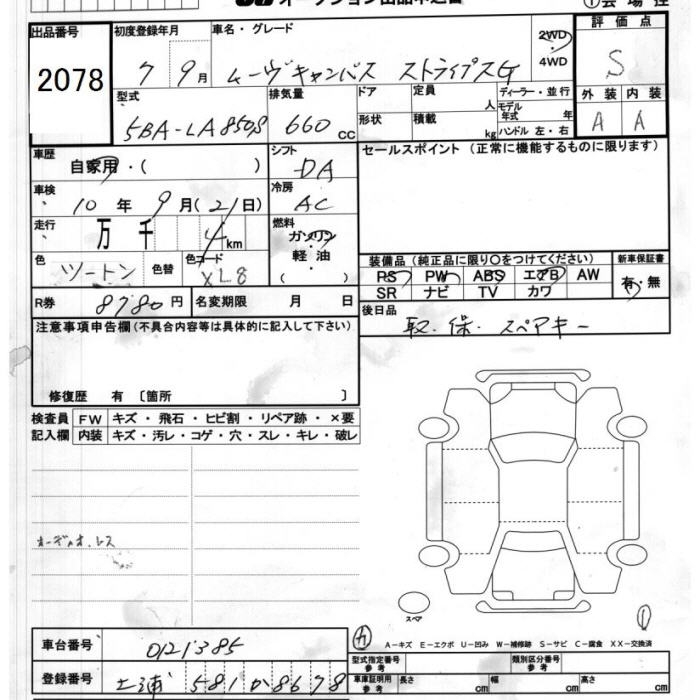 オークション出品申込書 ①会場控
出品番号 初度登録年月 車名・グレード 2WD 評価点
2078 7 9月 ムーヴキャンバス ストライプスG 4WD S
型式 排気量 ドア 定員 人 ディーラー・並行 外装 内装
5BA-LA850S 660 cc 形状 積載 kg モデル年式 年 ハンドル 左・右 A A
車歴 自家用・( ) シフト DA セールスポイント(正常に機能するものに限ります)
車検 10年 9月(21日) 冷房 AC
走行 万 千 4 km 燃料 ガソリン
軽油
( )
色 ツートン 色替 色コード XL8 装備品(純正品に限り○をつけてください) 新車保証書
PS PW ABS エアB AW 有・無
SR ナビ TV カワ
R券 8780円 名変期限 月 日 後日品 取・保・スペアキー
注意事項申告欄(不具合内容等は具体的に記入して下さい)
修復歴 有 〔箇所 〕
検査員 FW キズ・飛石・ヒビ割・リペア跡・×要
記入欄 内装 キズ・汚レ・コゲ・穴・スレ・キレ・破レ
オーディオレス
スペア
A-キズ E-エクボ U-凹み W-補修跡 S-サビ C-腐食 XX-交換済
車台番号 0121385 型式指定番号 参考 類別区分番号 参考
登録番号 土浦 581 か 8678 車庫証明用 参考 長さ cm 幅 cm 高さ cm